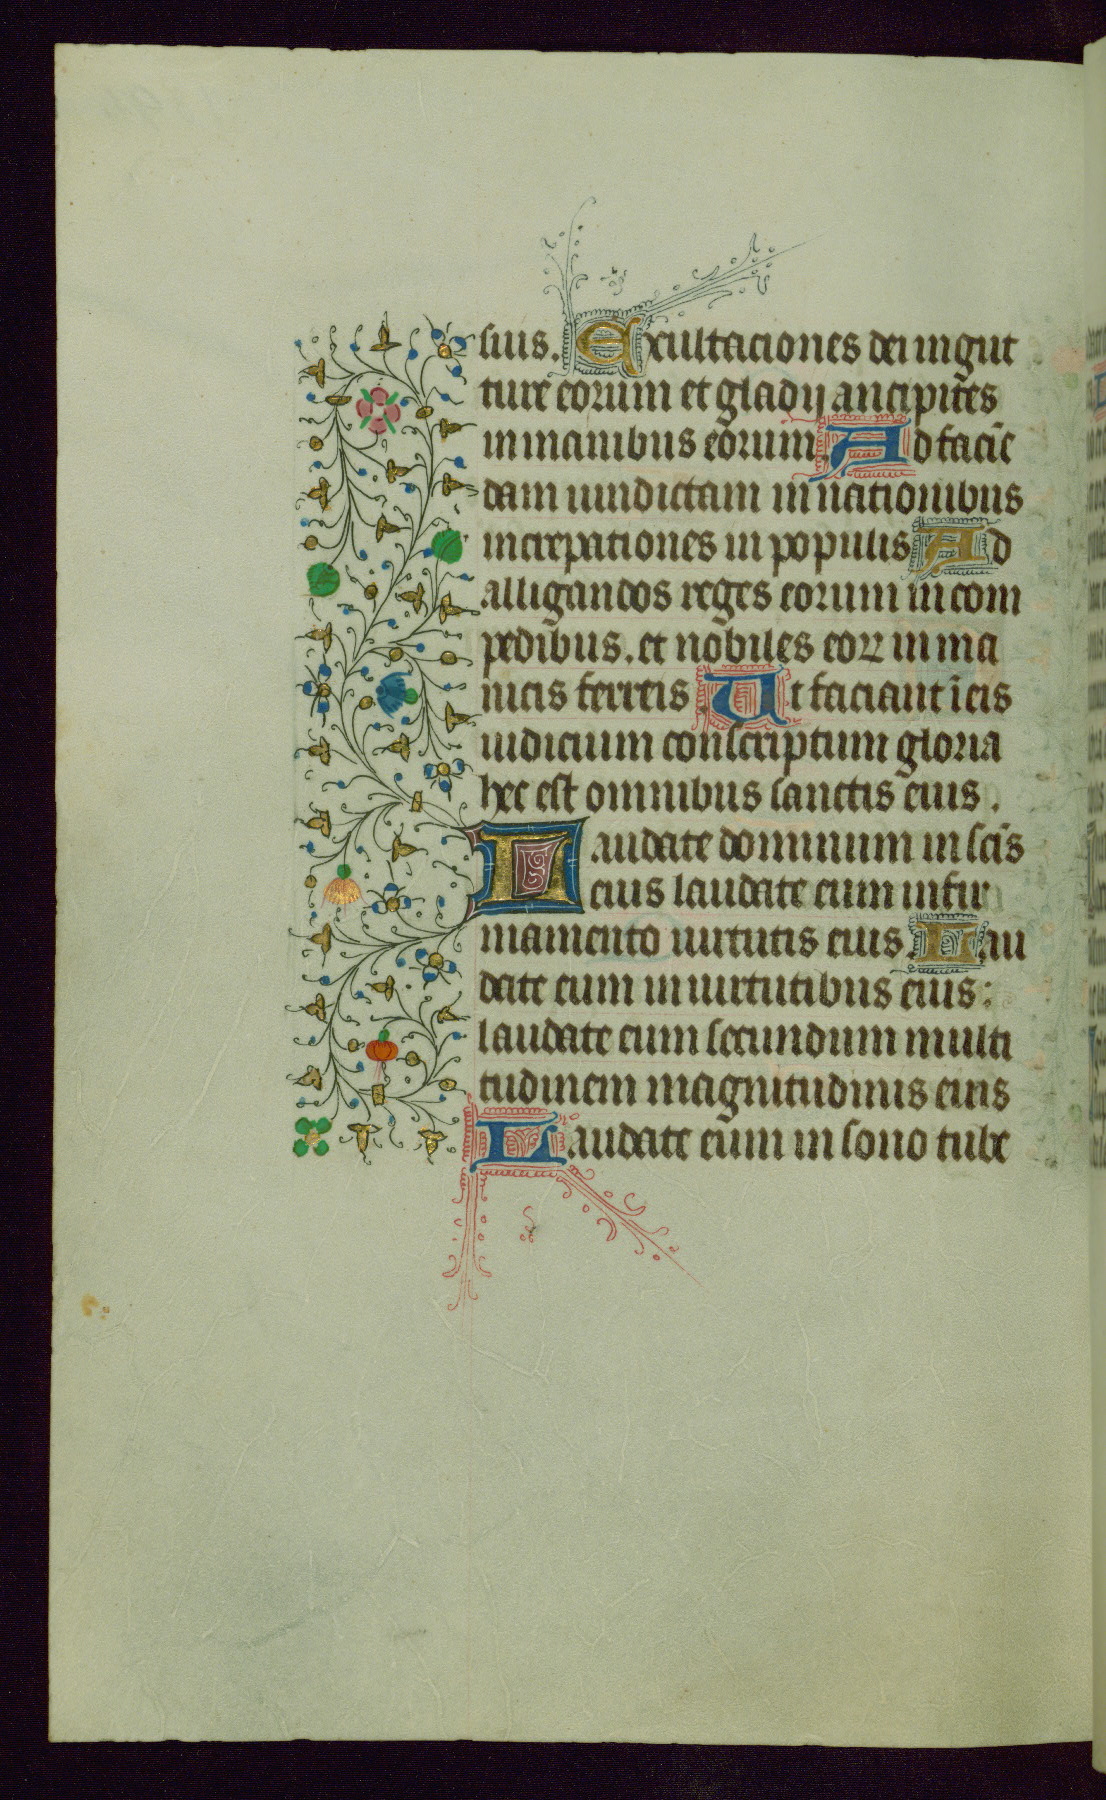 suis. Exultaciones dei in gut
ture eorum et gladij ancipites
in manibus eorum. Ad faciē
dam uindictam in nationibus
increpationes in populis Ad
alligandos reges eorum in com
pedibus. et nobiles eoꝝ in ma
nicis ferreis. Ut faciant ī eis
iudicium conscriptum gloria
hec est omnibus sanctis eius.
Laudate dominum in scīs
eius laudate eum in fir
mamento uirtutis eius. Lau
date eum in uirtutibus eius:
laudate eum secundum multi
tudinem magnitudinis eius
Laudate eum in sono tube